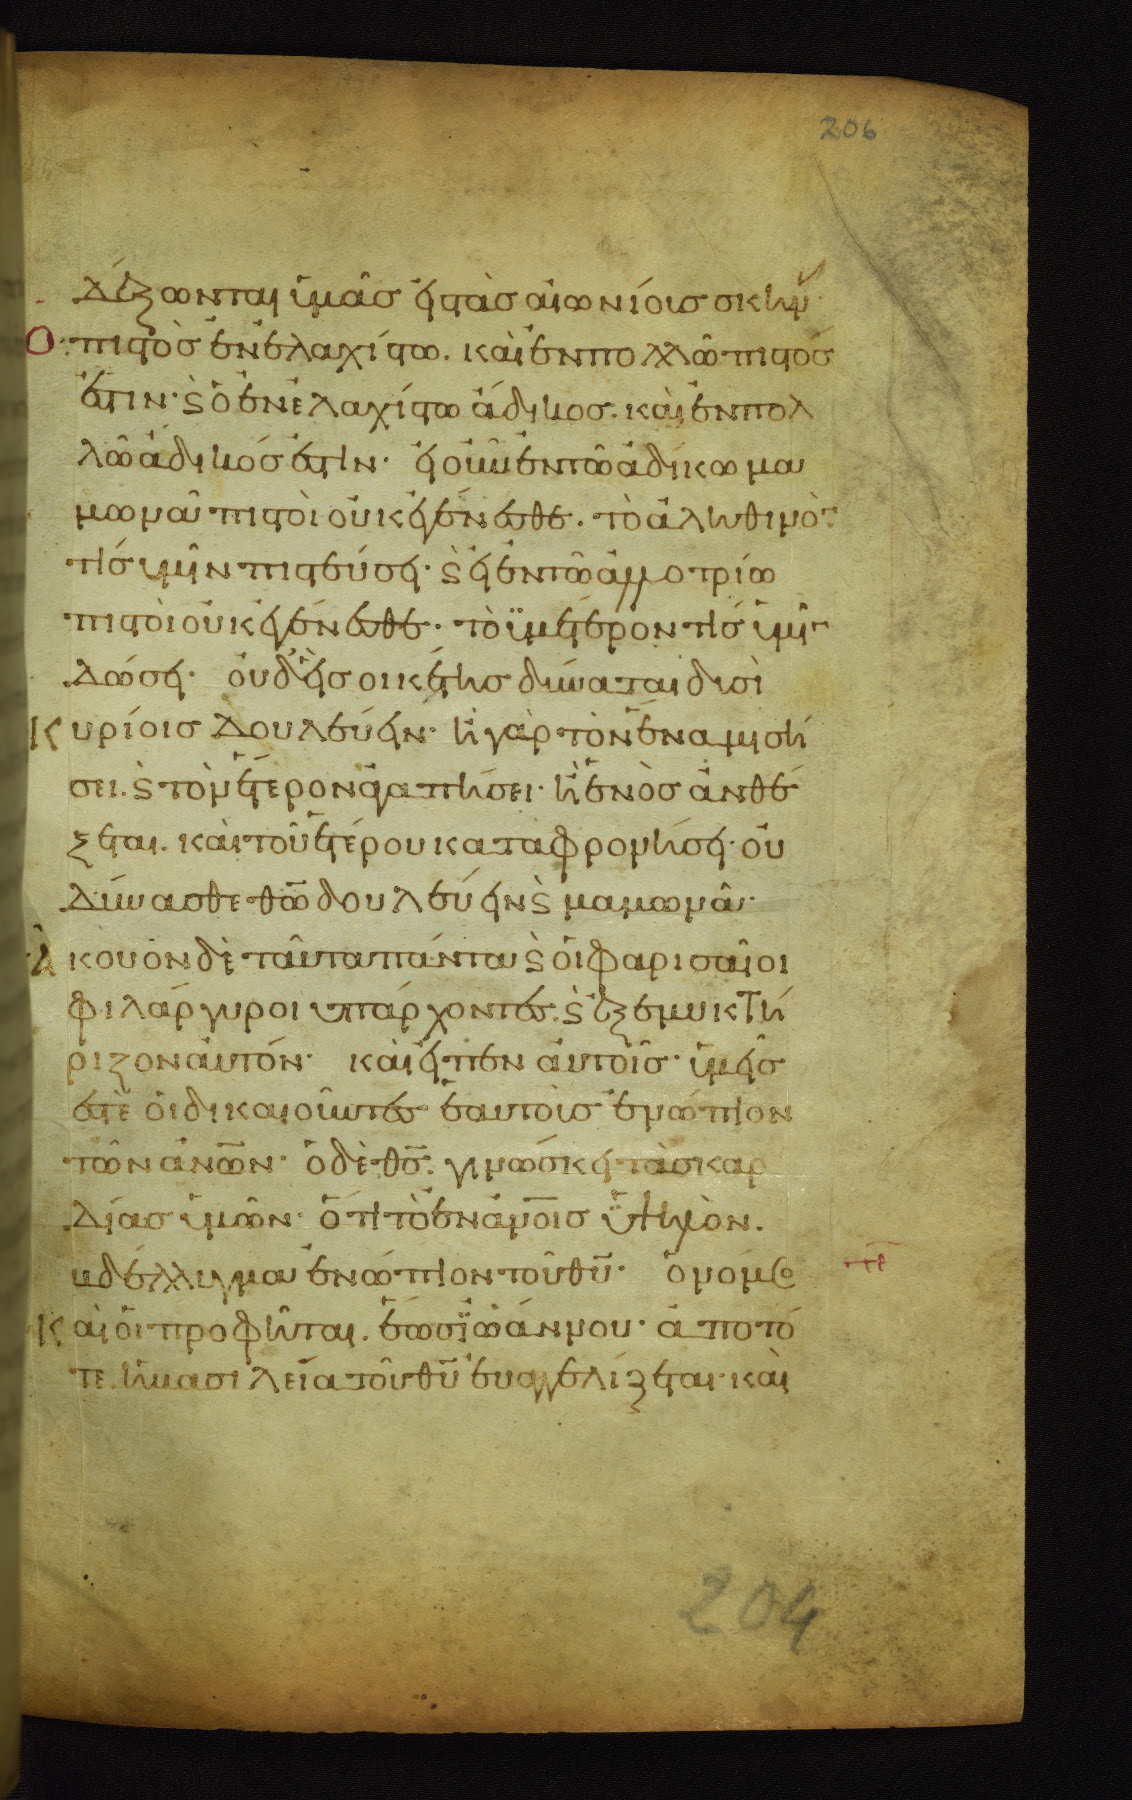 206
δέξωνται ὑμᾶσ εἰ τὰσ αἰωνίοισ σκην
Ο πιστὸσ ἐν ἐλαχίστω. καὶ ἐν πολλῶ πιστόσ
ἐστιν· ϗ ὁ ἐν ἐλαχίστω ἄδικοσ. καὶ ἐν πολ
λῶ ἄδικόσ ἐστιν· εἰ οὖν ἐν τῶ ἀδίκω μα
μωνᾶ πιστοὶ οὐκ ἐγένεσθε. τὸ ἀληθινὸν
τίσ ὑμῖν πιστεύσει· ϗ εἰ ἐν τῶ ἀλλοτρίω
πιστοὶ οὐκ ἐγένεσθε. τὸ ὑμέτερον τίσ ὑμῖν
δώσει· οὐδεὶσ οἰκέτησ δύναται δυσὶ
Κυρίοισ δουλεύειν· ἢ γὰρ τὸν ἕνα μισή
σει. ϗ τὸν ἕτερον ἀγαπήσει· ἢ ἑνὸσ ἀνθέ
ξεται. καὶ τοῦ ἑτέρου καταφρονήσει· οὐ
δύνασθε θω δουλεύειν ϗ μαμωνᾶ·
Ἀκουον δὲ ταῦτα πάντα ϗ οἱ φαρισαῖοι
φιλάργυροι ὑπάρχοντεσ. ϗ ἐξεμυκτή
ριζον αὐτόν· καὶ εἶπεν αὐτοῖσ· ὑμεῖσ
ἐστὲ οἱ δικαιοῦντεσ ἑαυτοὺσ ἐνώπιον
τῶν ανων· ὁ δὲ θσ. γινώσκει τὰσ καρ
δίασ ὑμῶν· ὅτι τὸ ἐν ανοισ ὑψηλὸν.
βδέλυγμα ἐνώπιον τοῦ θυ· ὁ νόμοσ
Καὶ οἱ προφῆται. ἕωσ ἰωάννου· ἀπὸ τό
τε ἡ βασιλεία τοῦ θυ εὐαγγελίζεται· καὶ
204